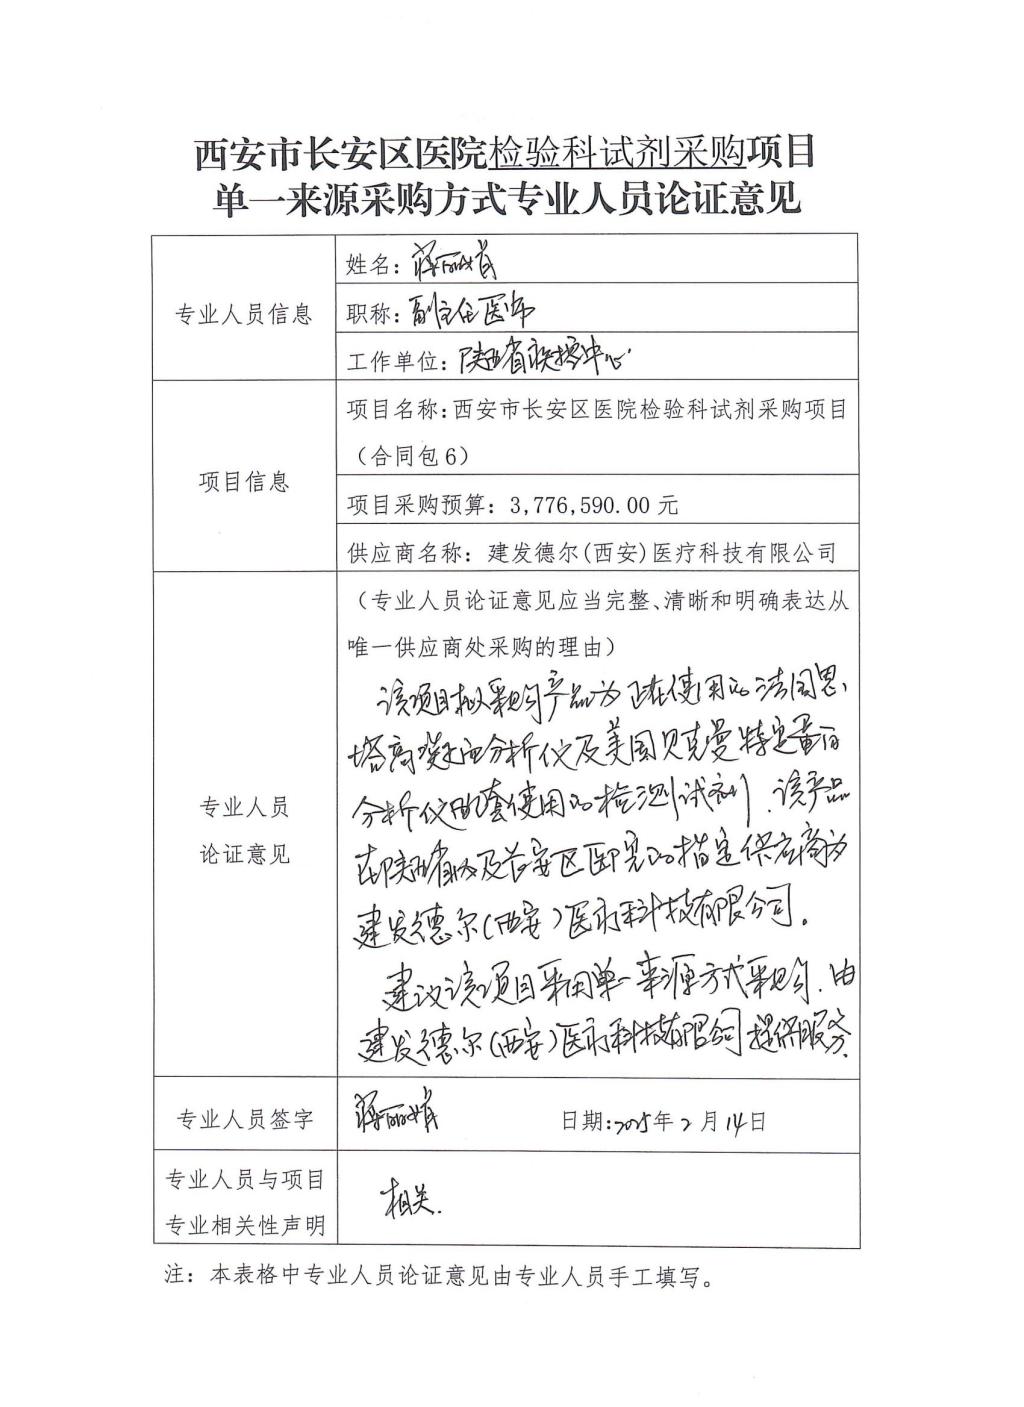 西安市长安区医院检验科试剂采购项目
单一来源采购方式专业人员论证意见
专业人员信息
姓名：蒋丽娟
职称：副主任医师
工作单位：陕西省疾控中心
项目信息
项目名称：西安市长安区医院检验科试剂采购项目
（合同包6）
项目采购预算：3,776,590.00 元
供应商名称：建发德尔(西安)医疗科技有限公司
专业人员
论证意见
（专业人员论证意见应当完整、清晰和明确表达从
唯一供应商处采购的理由）
该项目拟采购产品为正在使用的法国思
塔高凝血分析仪及美国贝克曼特定蛋白
分析仪配套使用的检测试剂，该产品
在陕西省以及长安区医院的指定供应商为
建发德尔(西安)医疗科技有限公司。
建议该项目采用单一来源方式采购，由
建发德尔(西安)医疗科技有限公司提供服务
专业人员签字
蒋丽娟
日期:2025年2月14日
专业人员与项目
专业相关性声明
相关.
注：本表格中专业人员论证意见由专业人员手工填写。